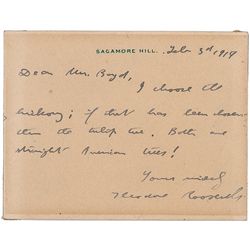 SAGAMORE HILL. Feb 3rd 1919
Dear Mrs. Boyd,
I choose the
hickory; if that has been chosen
then the tulip tree. Both are
straight American trees!
Yours
Theodore Roosevelt